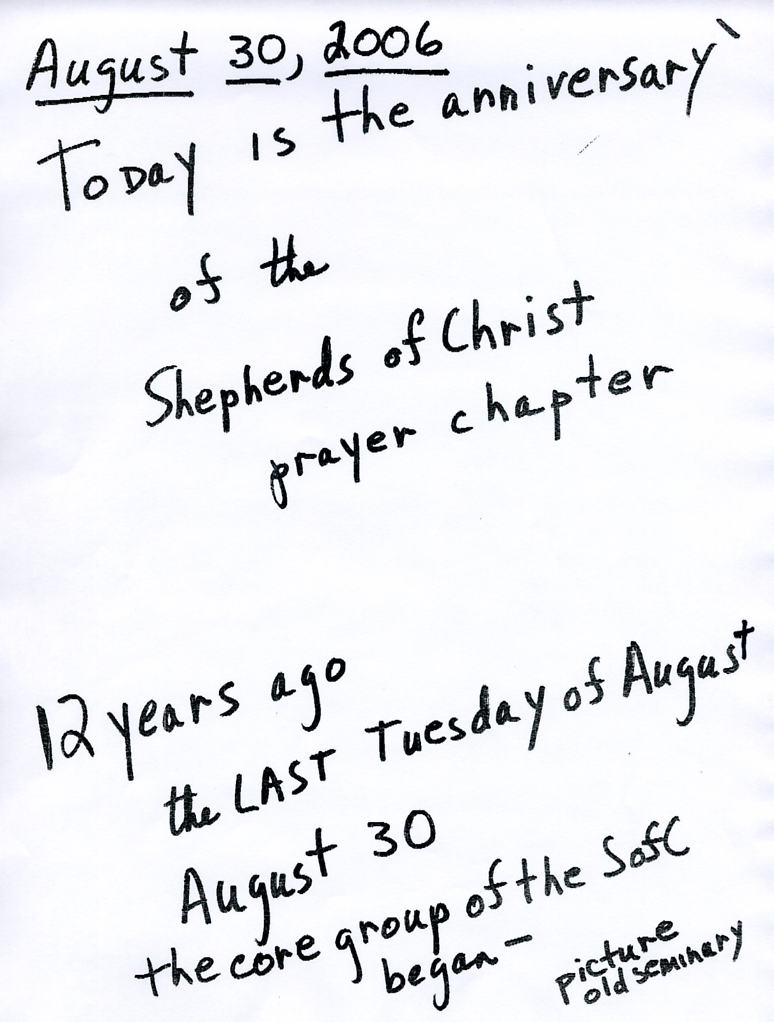 August 30, 2006
Today is the anniversary
of the
Shepherds of Christ
prayer chapter
12 years ago
the LAST Tuesday of August
August 30
the core group of the SofC
began –
picture
old seminary